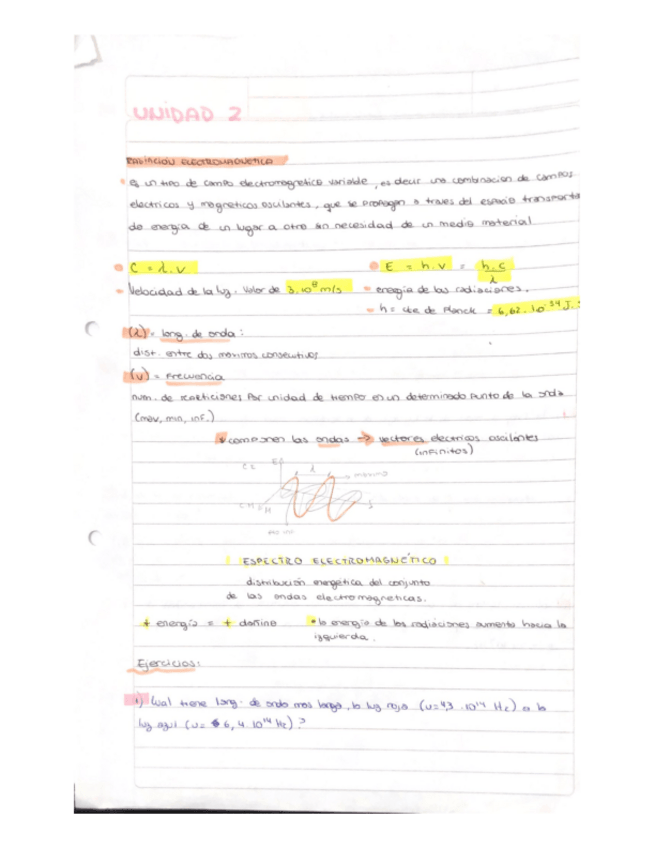 UNIDAD 2
RADIACION ELECTROMAGNETICA
es un tipo de campo electromagnetico variable, es decir una combinacion de campos
electricos y magneticos oscilantes, que se propagan a traves del espacio transporta
do energia de un lugar a otro sin necesidad de un medio material
C = λ.ν
E = h.ν = h.c / λ
Velocidad de la luz. Valor de 3.10⁸ m/s
energia de las radiaciones.
h = cte de Planck = 6,62.10⁻³⁴ J.
(λ) = long. de onda:
dist. entre dos maximos consecutivos
(ν) = Frecuencia
num. de repeticiones por unidad de tiempo en un determinado punto de la onda
(max, min, inf.)
componen las ondas → vectores electricos oscilantes
(infinitos)
λ
ESPECTRO ELECTROMAGNÉTICO
distribución energética del conjunto
de las ondas electromagneticas.
+ energia = + dañino
la energia de las radiaciones aumenta hacia la
izquierda.
Ejercicios:
1) Cual tiene long. de onda mas larga, la luz roja (ν=4,3 .10¹⁴ Hz) o la
luz azul (ν= 6,4.10¹⁴ Hz)?